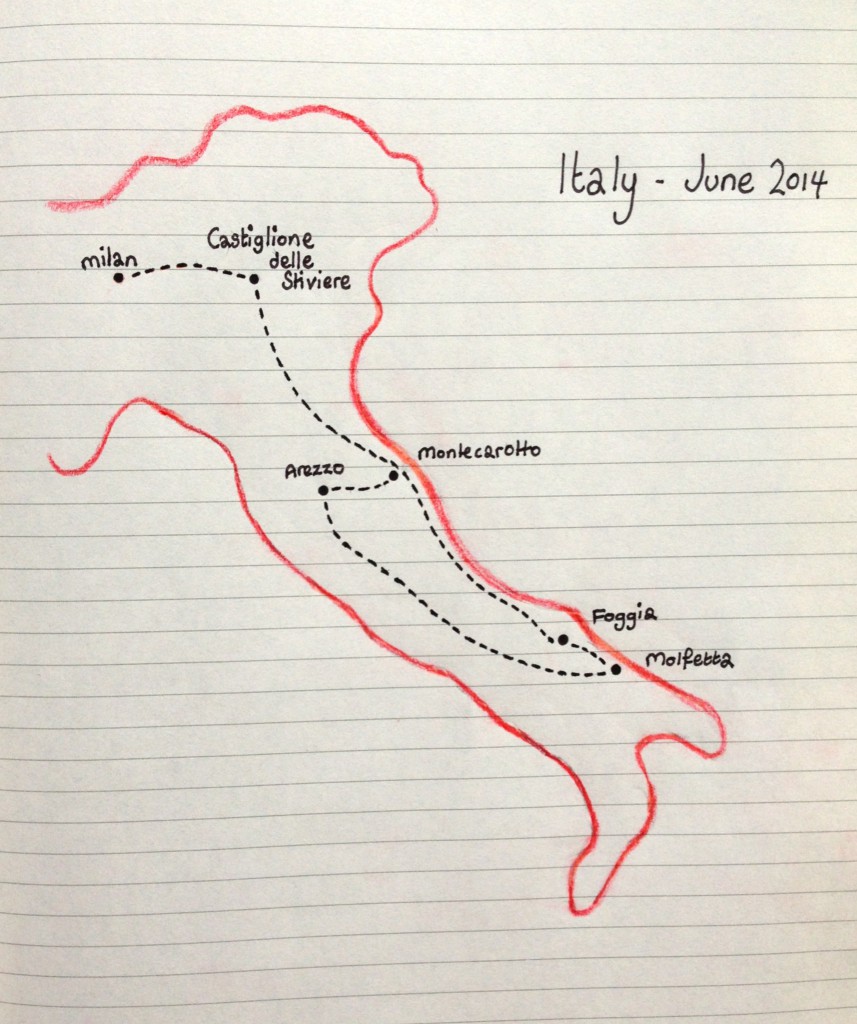 Italy - June 2014
milan
Castiglione
delle
Stiviere
montecarotto
Arezzo
Foggia
Molfetta